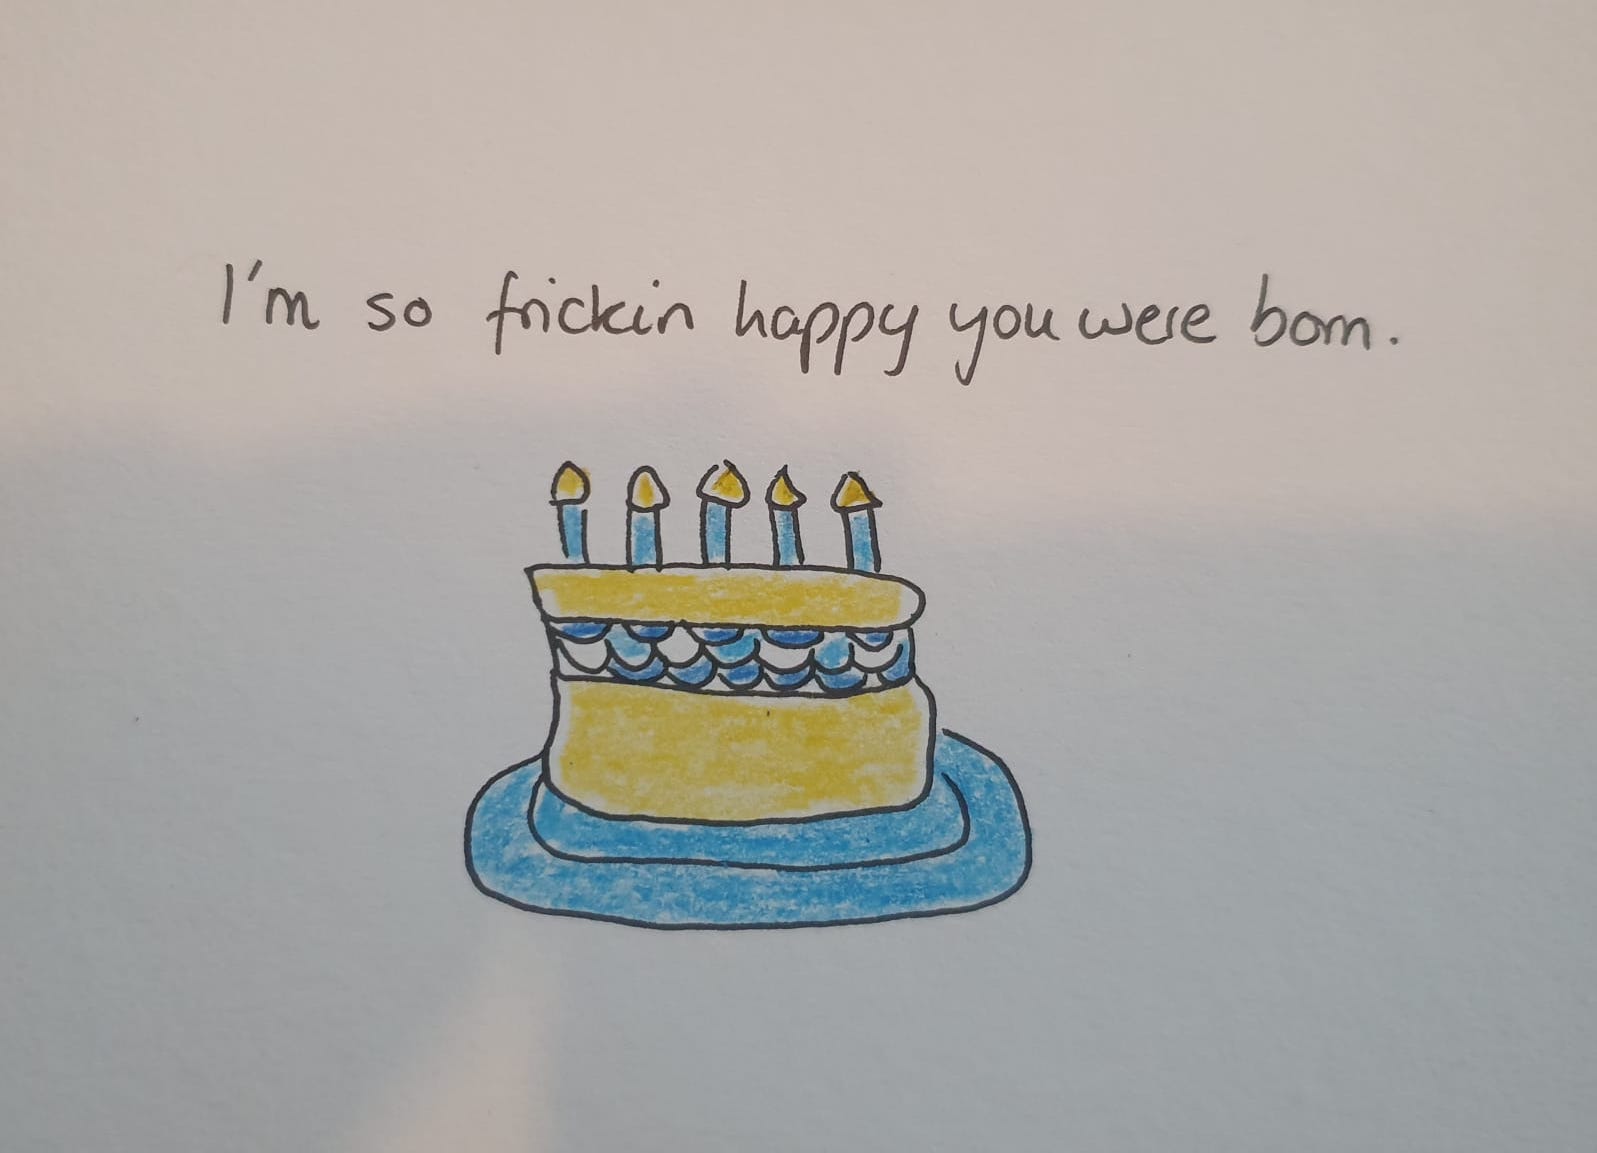 I'm so frickin happy you were born.